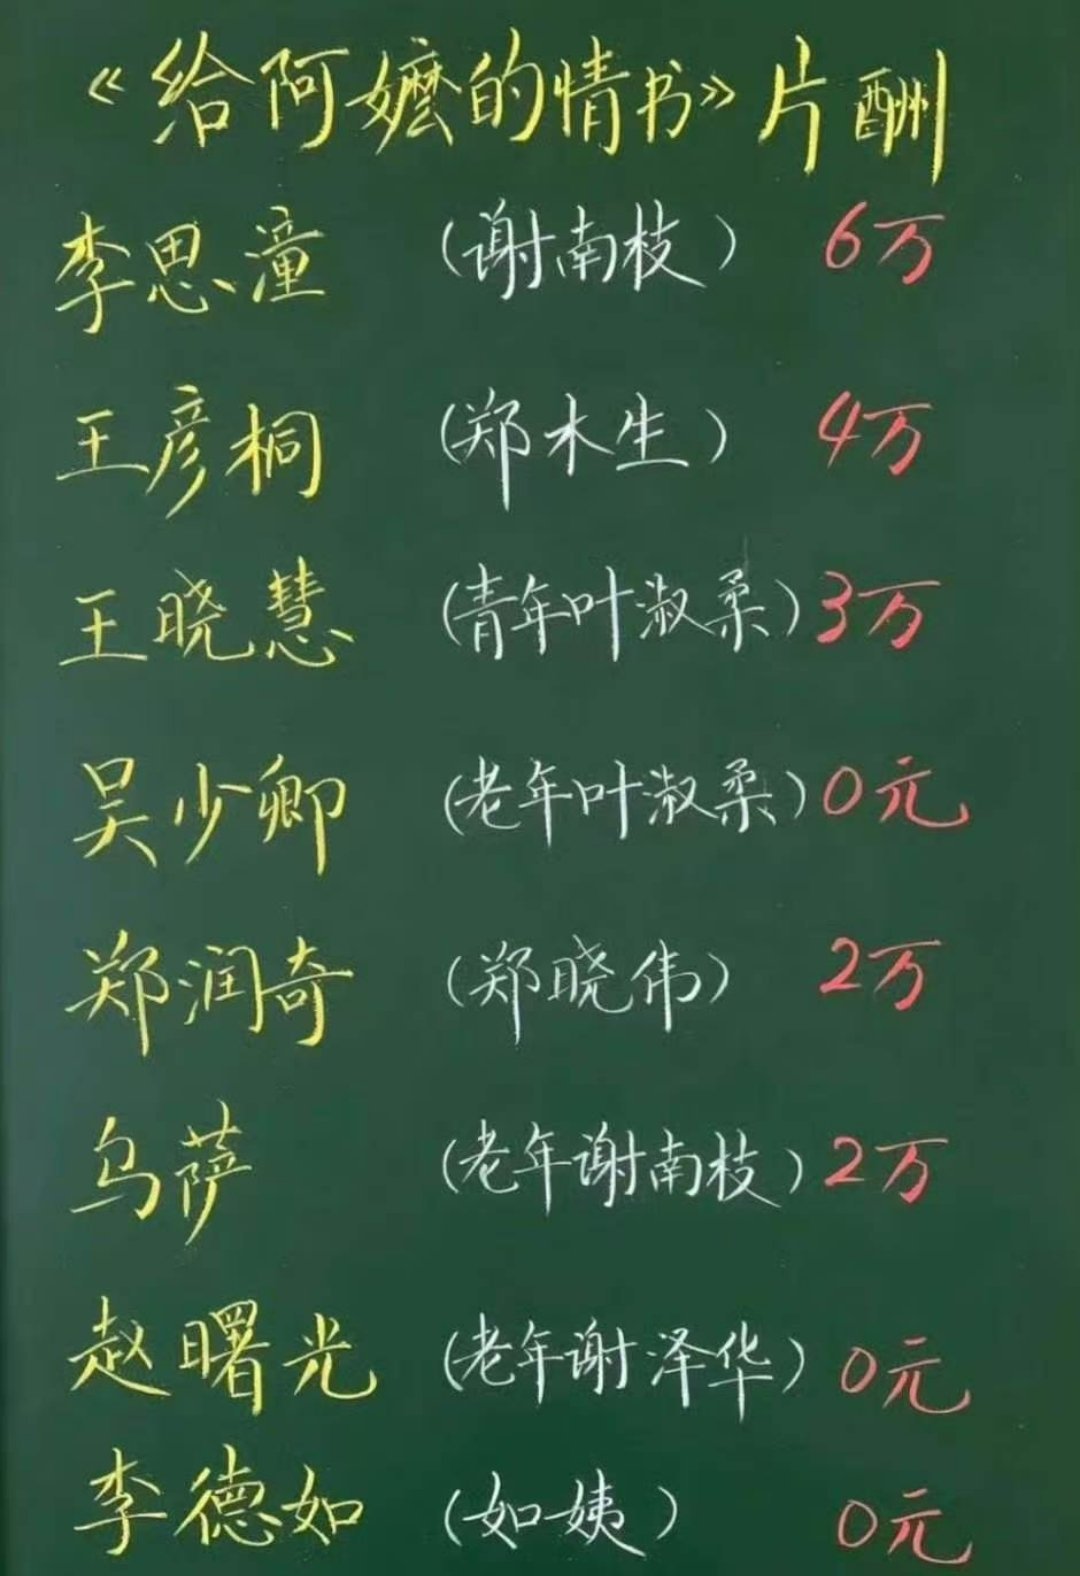 《给阿嬷的情书》片酬
李思潼 (谢南枝) 6万
王彦桐 (郑木生) 4万
王晓慧 (青年叶淑柔) 3万
吴少卿 (老年叶淑柔) 0元
郑润奇 (郑晓伟) 2万
乌萨 (老年谢南枝) 2万
赵曙光 (老年谢泽华) 0元
李德如 (如姨) 0元